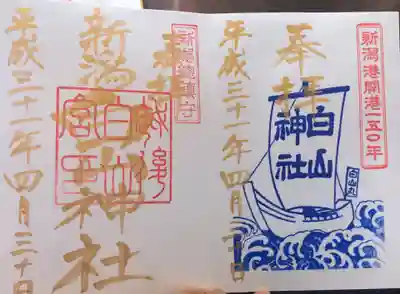 新潟港開港一五〇年
奉拝
白山神社
白山丸
平成三十一年四月三十日
新潟総鎮守
奉拝
新潟白山神社
越後
白山
宮印
平成三十一年四月三十日